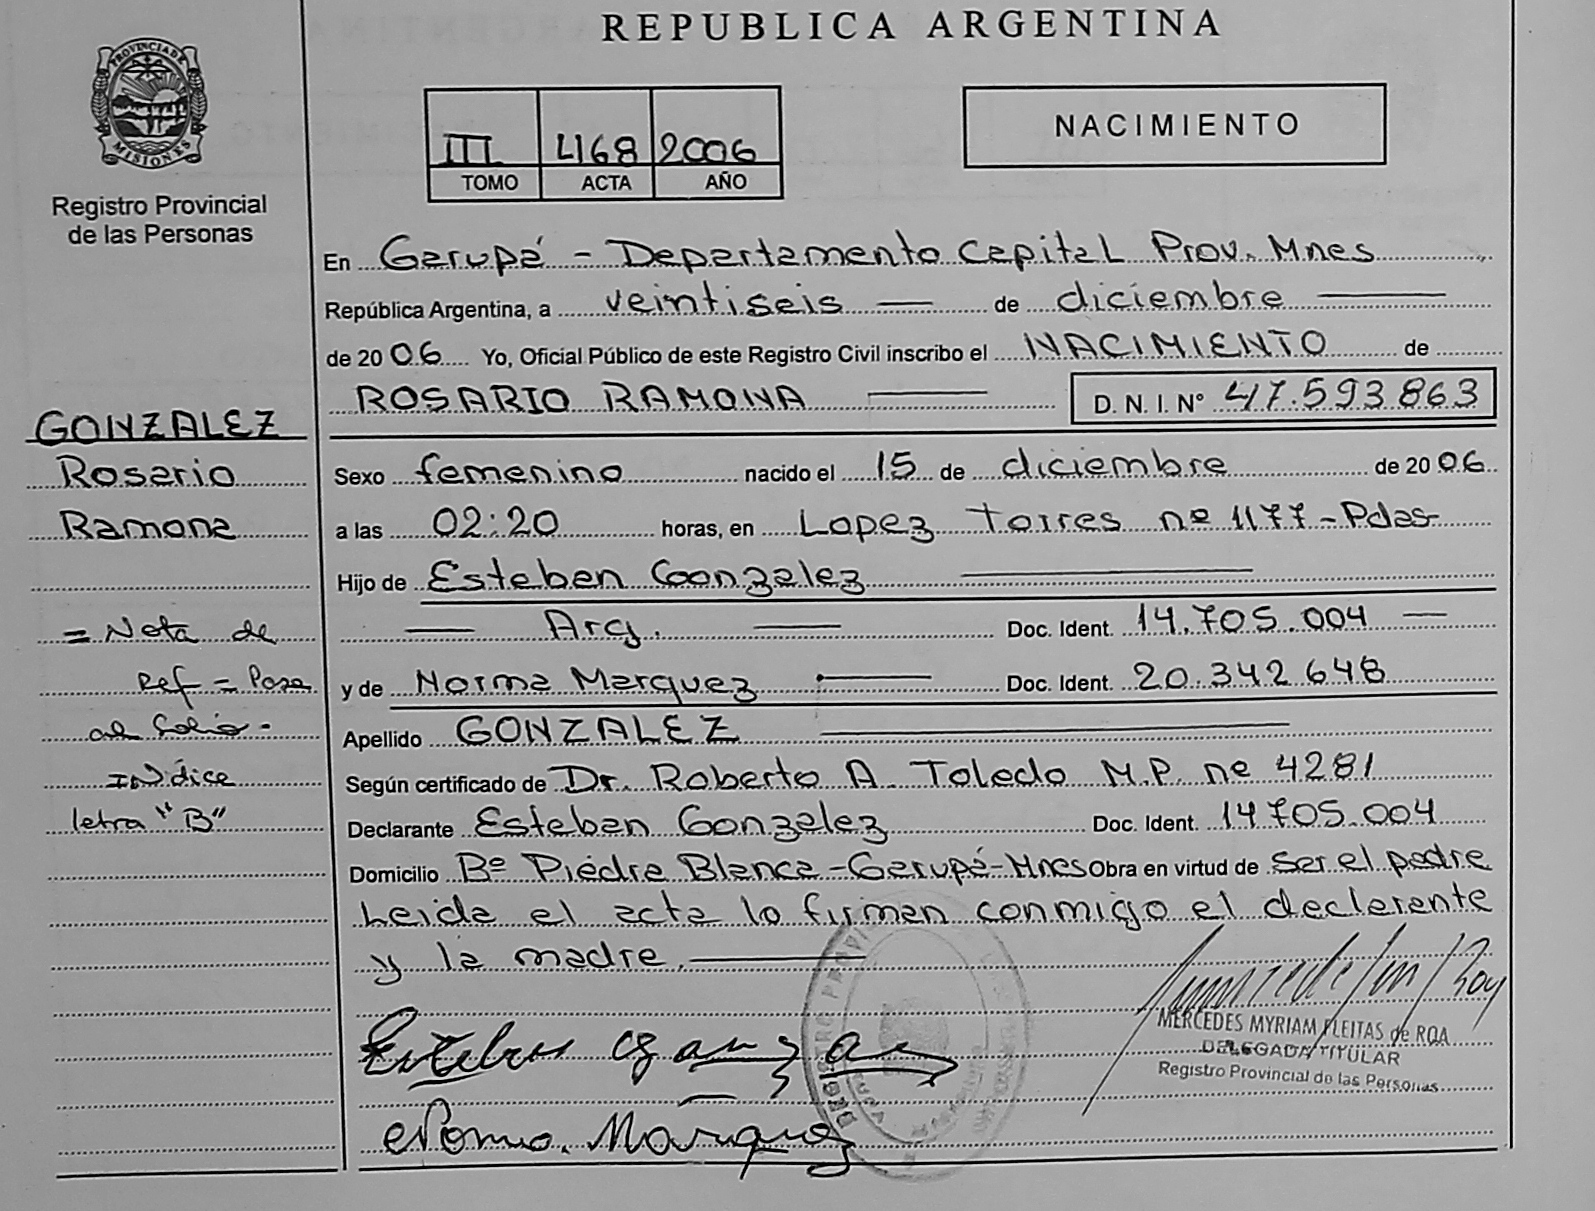 REPUBLICA ARGENTINA
PROVINCIA DE MISIONES
Registro Provincial
de las Personas
III 468 2006
TOMO ACTA AÑO
NACIMIENTO
En Garupá - Departamento Capital Prov. Mnes
República Argentina, a veintiseis de diciembre
de 2006 Yo, Oficial Público de este Registro Civil inscribo el NACIMIENTO de
ROSARIO RAMONA D. N. I. N° 47.593.863
GONZALEZ
Rosario
Ramona
= Nota de
Ref = Pasa
al folio -
INdice
letra "B"
Sexo femenino nacido el 15 de diciembre de 2006
a las 02:20 horas, en Lopez Torres nº 1177 - Pdas
Hijo de Esteban Gonzalez
Arg. Doc. Ident. 14.705.004
y de Norma Marquez Doc. Ident. 20.342.648
Apellido GONZALEZ
Según certificado de Dr. Roberto A. Toledo M.P. nº 4281
Declarante Esteban Gonzalez Doc. Ident. 14705.004
Domicilio Bº Piedra Blanca - Garupá - Mnes Obra en virtud de ser el padre
Leida el acta lo firman conmigo el declarente
y la madre.
Esteban Gonzalez
Norma Marquez
MERCEDES MYRIAM FLEITAS de ROA
DELEGADA TITULAR
Registro Provincial de las Personas